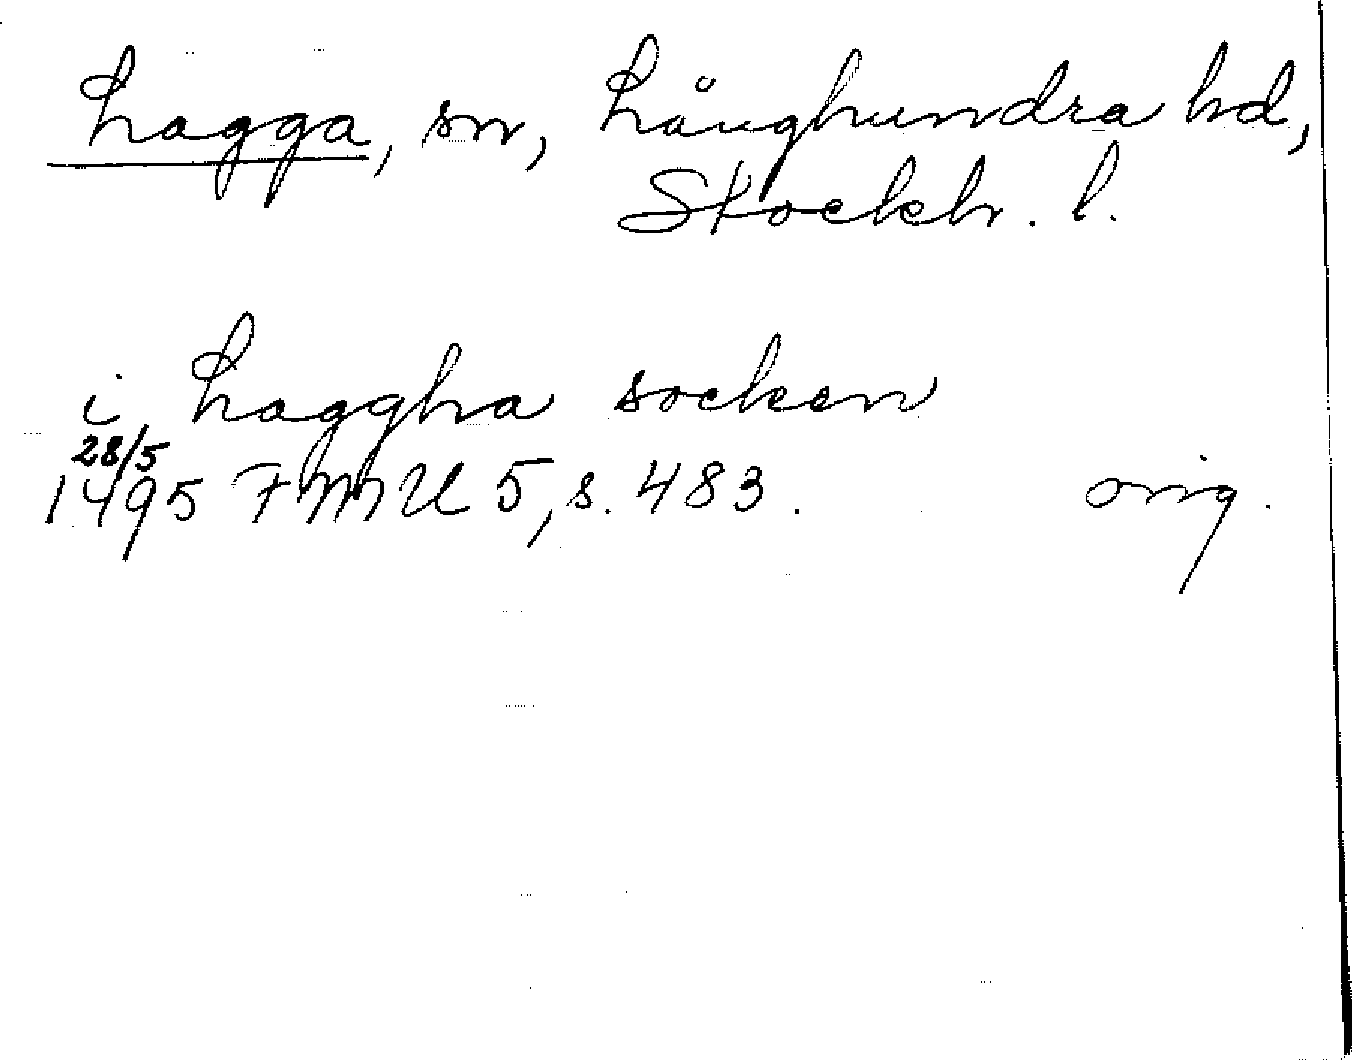 Lagga, sn, Långhundra hd,
Stockh. l.
i Laggha socken
28/5
1495 FMU 5, s. 483. orig.